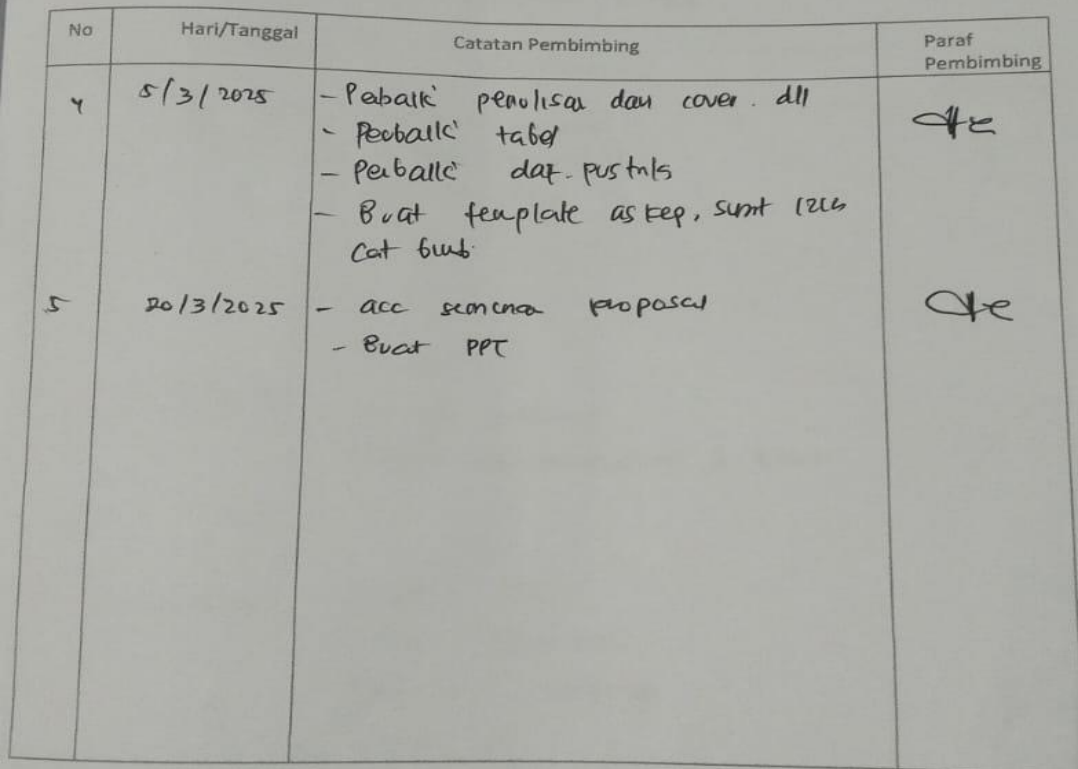 No Hari/Tanggal Catatan Pembimbing Paraf Pembimbing
4 5/3/2025 - Perbaiki penulisan dan cover. dll
- Perbaiki tabel
- Perbaiki daf. pustaka
- Buat template askep, surat izin
Cat bimb.
5 20/3/2025 - acc seminar proposal
- Buat PPT